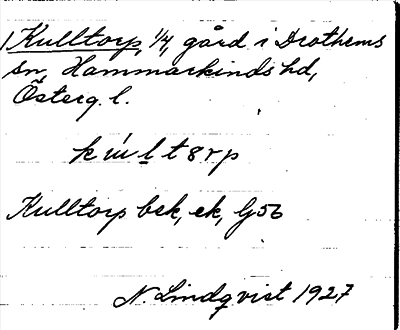 Kulltorp, 1/4, gård i Drothems
sn, Hammarkinds hd,
Österg. l.
Kulltorp bsk, ek, G56
N. Lindqvist 1927